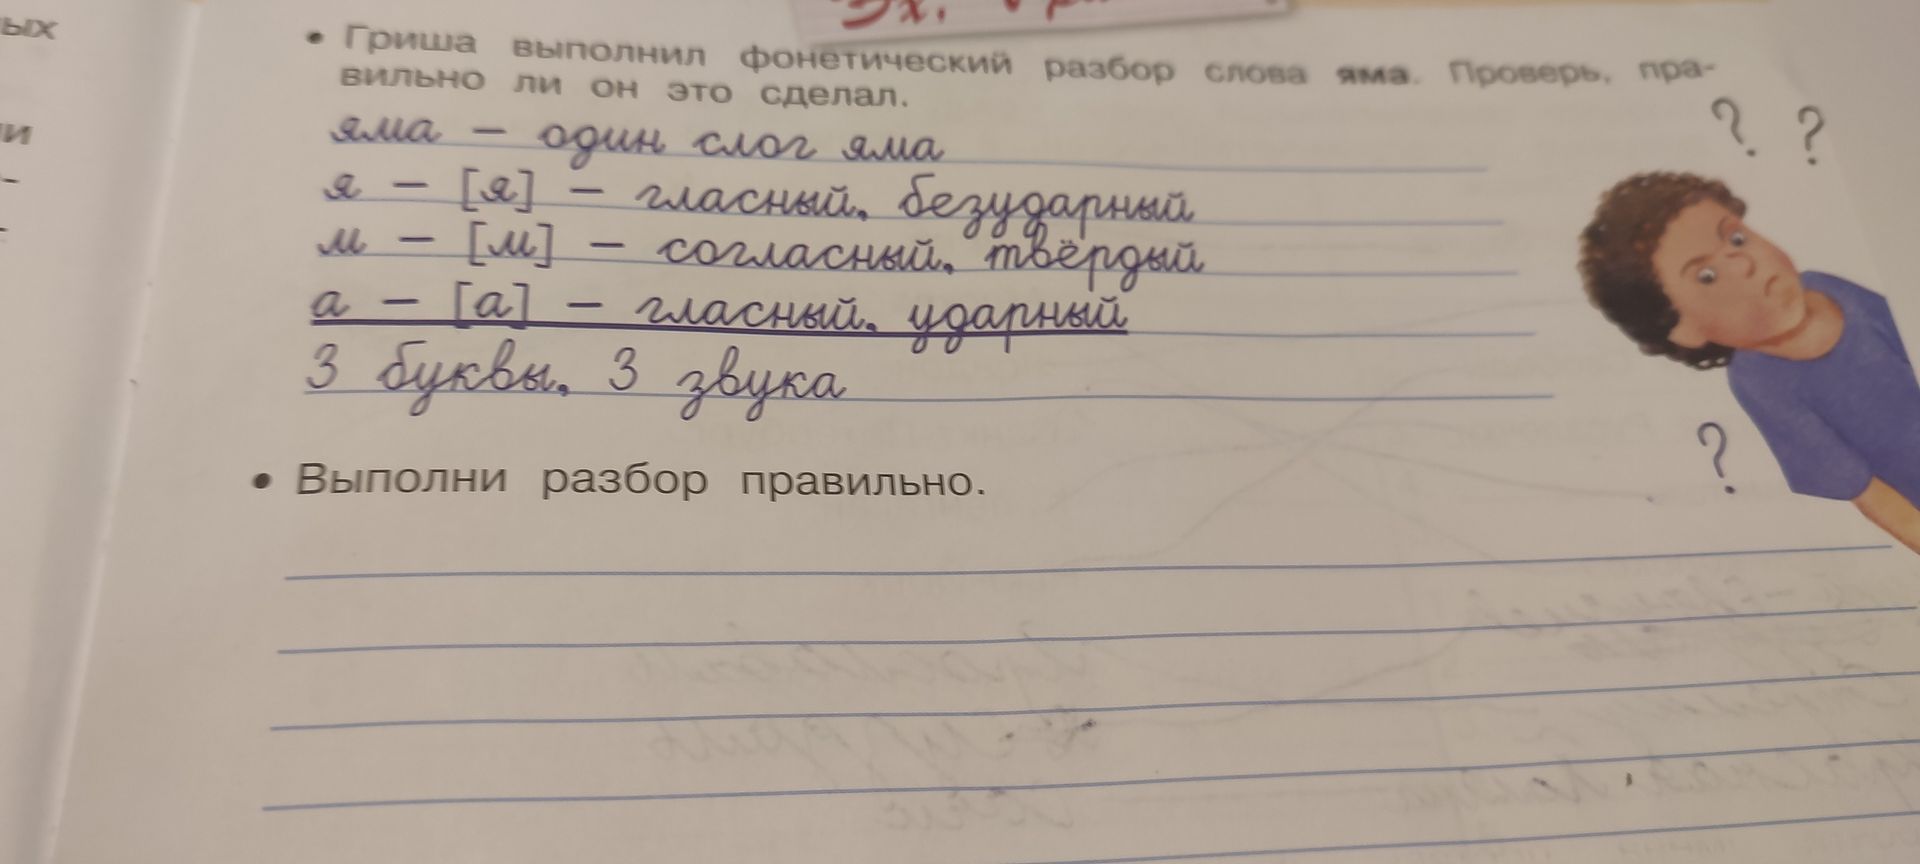 ых
Эх,
• Гриша выполнил фонетический разбор слова яма. Проверь, пра-
вильно ли он это сделал.
и
–
? ?
яма – один слог яма
я – [я] – гласный, безударный
м – [м] – согласный, твёрдый
а – [а] – гласный, ударный
3 буквы, 3 звука
?
• Выполни разбор правильно.